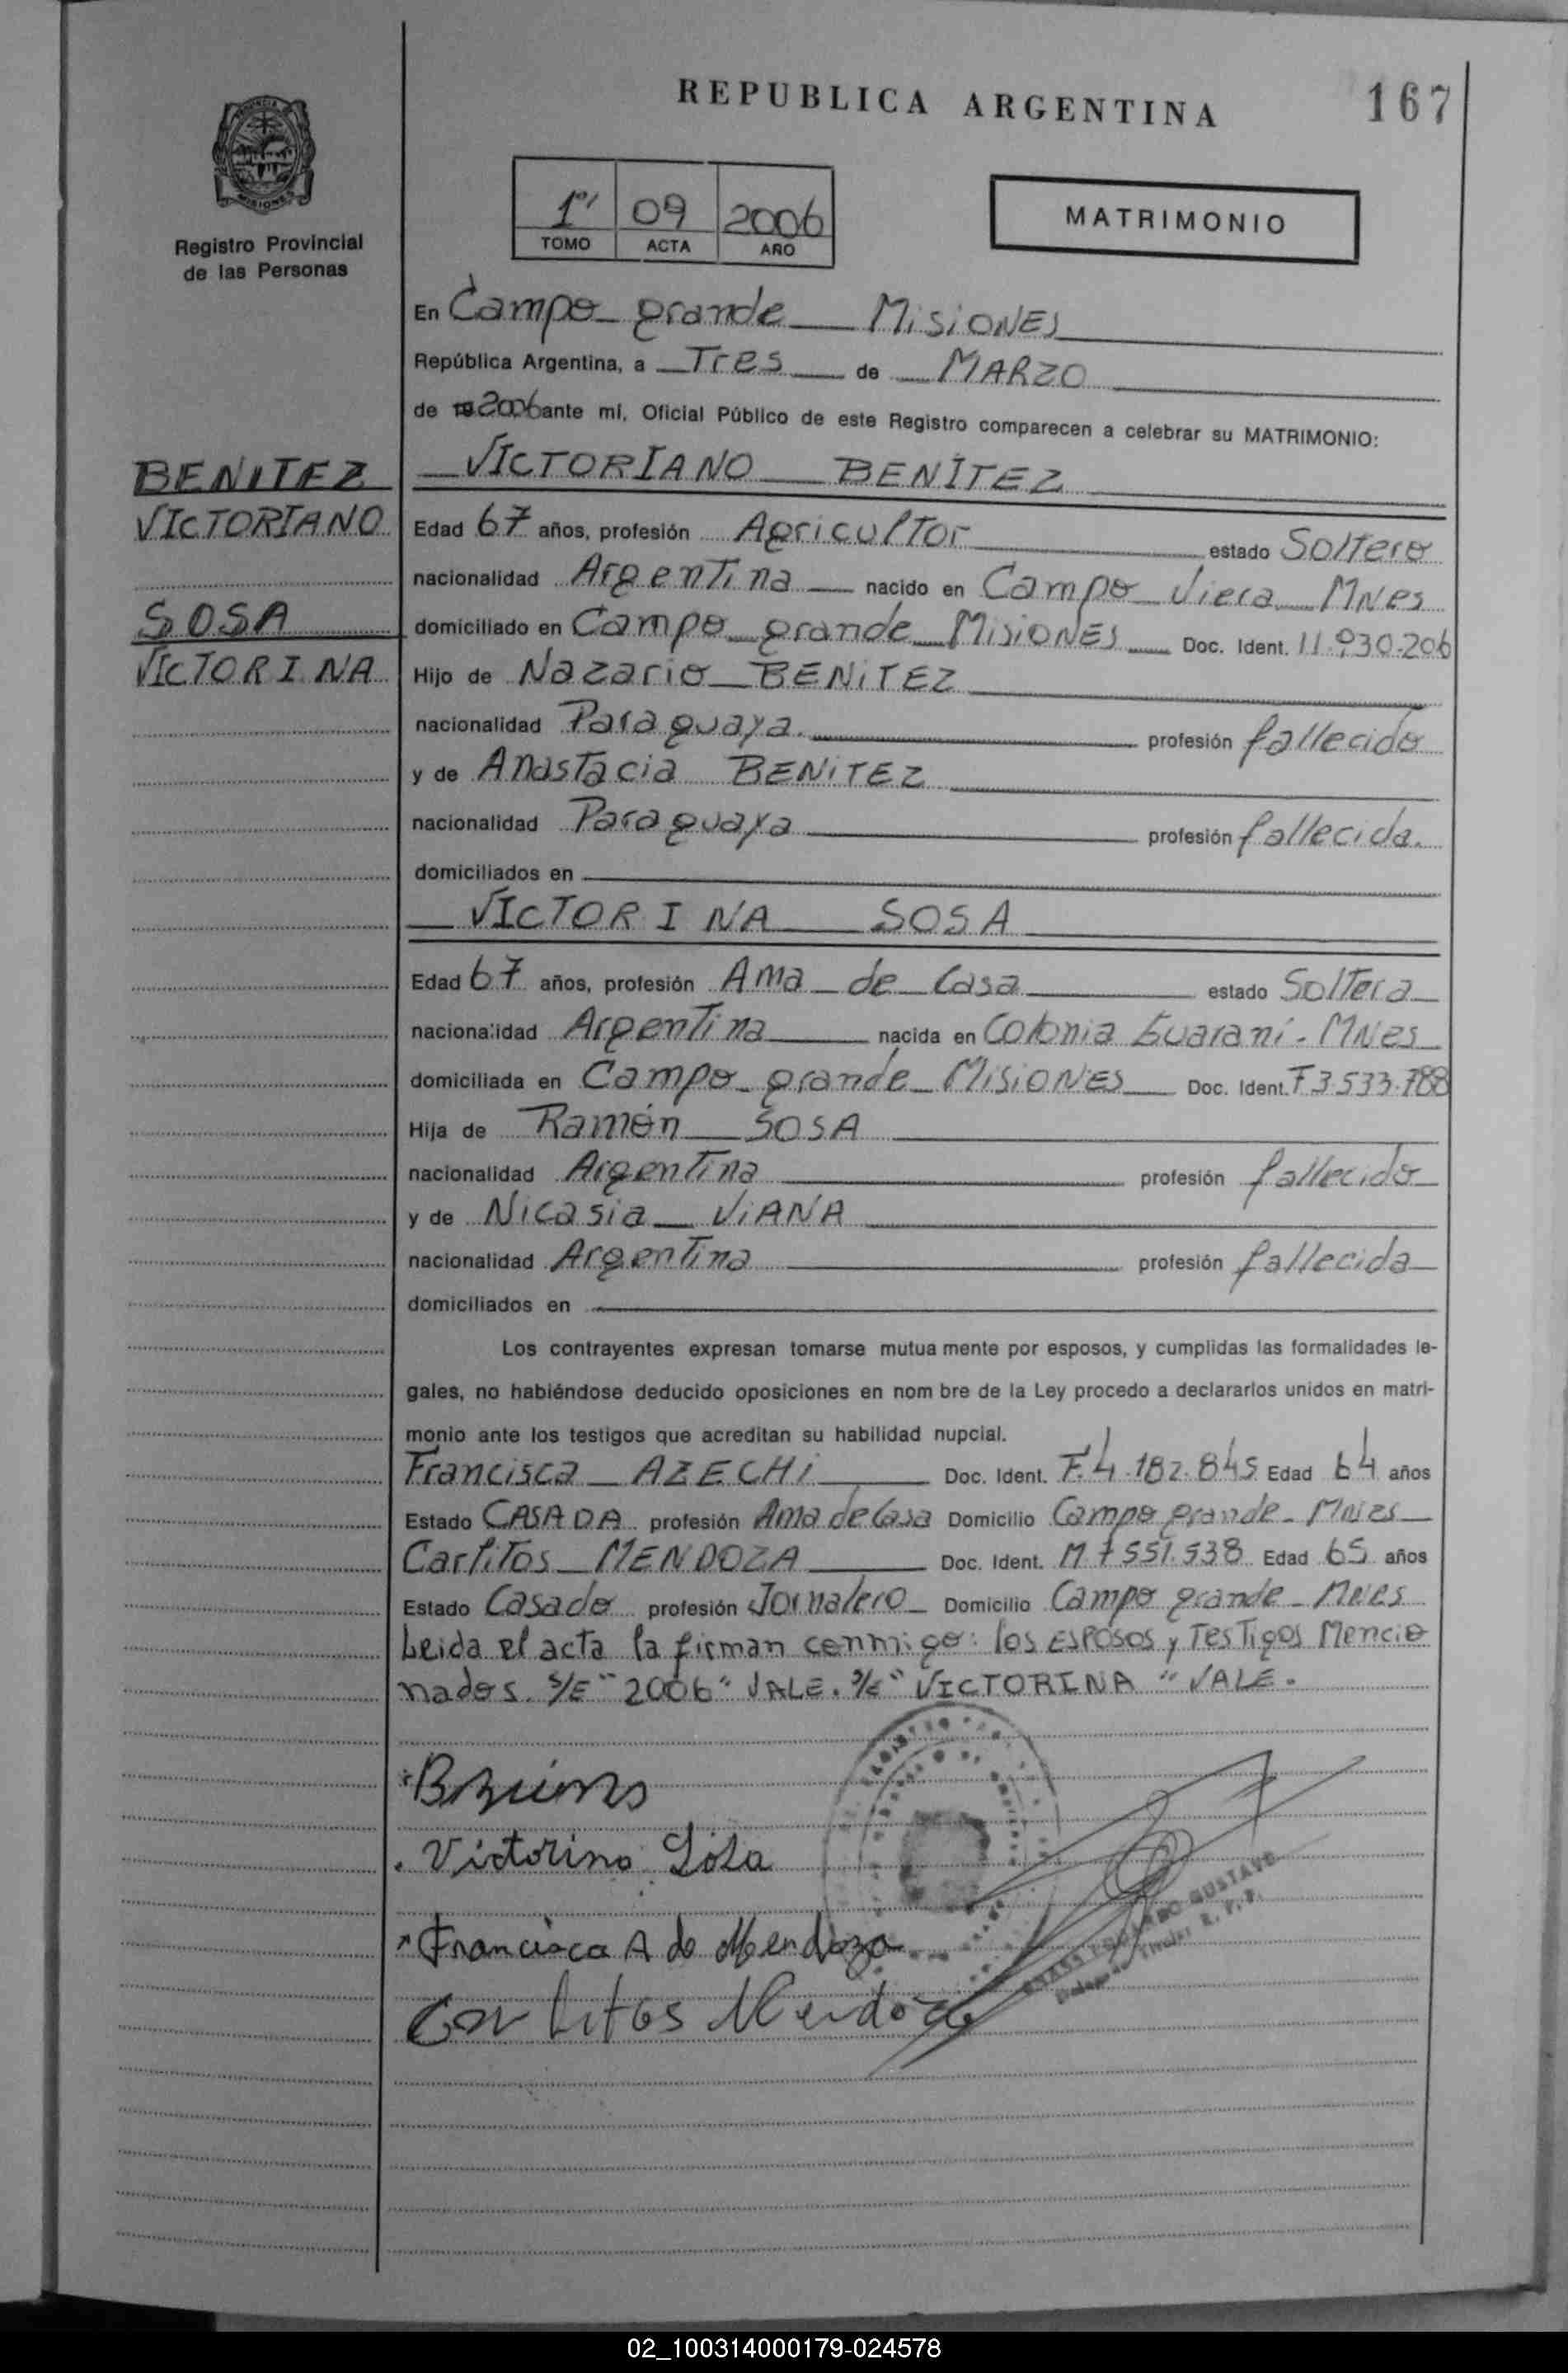 REPUBLICA ARGENTINA
167
PROVINCIA DE
MISIONES
Registro Provincial
de las Personas
1º 09 2006
TOMO ACTA AÑO
MATRIMONIO
En Campo grande Misiones
República Argentina, a Tres de MARZO
de 19 2006 ante mí, Oficial Público de este Registro comparecen a celebrar su MATRIMONIO:
BENITEZ
VICTORIANO
SOSA
VICTORINA
VICTORIANO BENÍTEZ
Edad 67 años, profesión Agricultor estado Soltero
nacionalidad Argentina nacido en Campo Viera Mnes
domiciliado en Campo grande Misiones Doc. Ident. 11.930.206
Hijo de Nazario BENITEZ
nacionalidad Paraguaya. profesión fallecido
y de Anastacia BENITEZ
nacionalidad Paraguaya profesión fallecida.
domiciliados en
VICTORINA SOSA
Edad 67 años, profesión Ama de Casa estado Soltera
nacionalidad Argentina nacida en Colonia Guaraní - Mnes
domiciliada en Campo grande Misiones Doc. Ident. F3.533.788
Hija de Ramón SOSA
nacionalidad Argentina profesión fallecido
y de Nicasia VIANA
nacionalidad Argentina profesión fallecida
domiciliados en
Los contrayentes expresan tomarse mutua mente por esposos, y cumplidas las formalidades le-
gales, no habiéndose deducido oposiciones en nom bre de la Ley procedo a declararlos unidos en matri-
monio ante los testigos que acreditan su habilidad nupcial.
Francisca AZECHI Doc. Ident. F.4.182.845 Edad 64 años
Estado CASADA profesión Ama de Casa Domicilio Campo grande - Mnes
Carlitos MENDOZA Doc. Ident. M 7551.538 Edad 65 años
Estado Casado profesión Jornalero Domicilio Campo grande - Mnes
Leida el acta la firman conmigo: los Esposos y Testigos Mencio
nados. S/E "2006" VALE. S/E "VICTORINA" VALE.
Victorina Sosa
Francisca A de Mendoza
Carlitos Mendoza
GUSTAVO
02_100314000179-024578